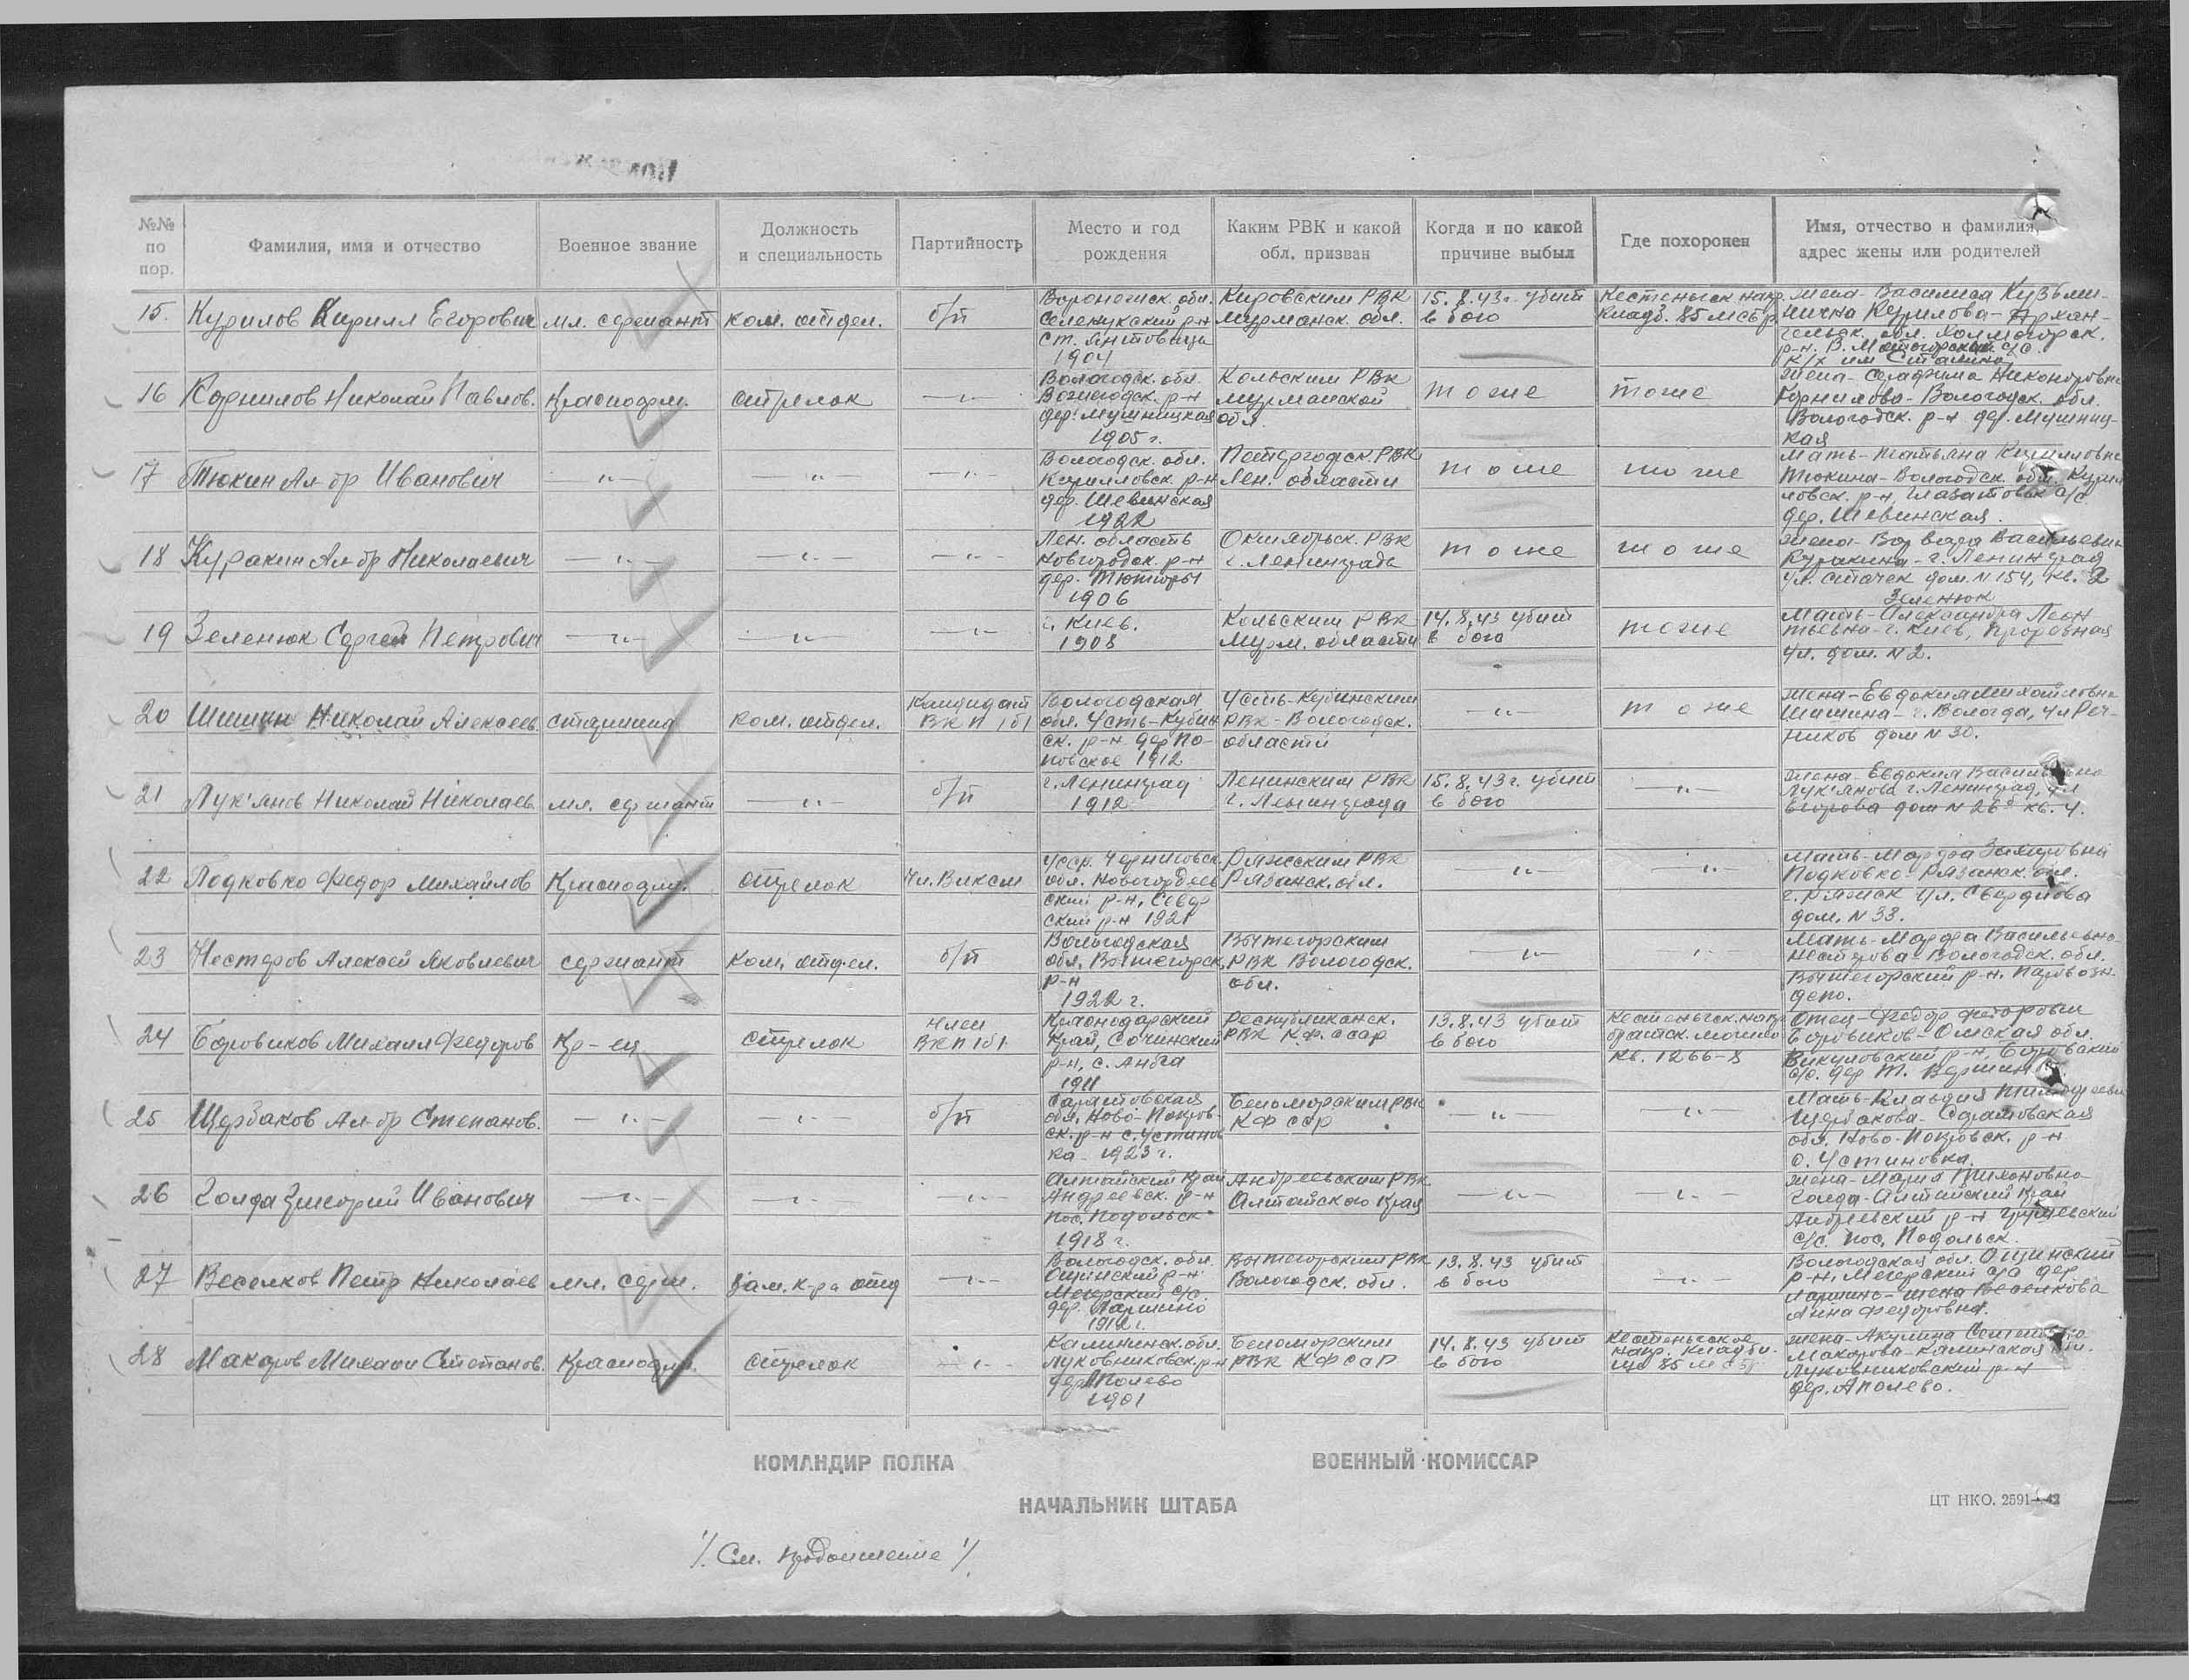 №№ по пор.
Фамилия, имя и отчество
Военное звание
Должность и специальность
Партийность
Место и год рождения
Каким РВК и какой обл. призван
Когда и по какой причине выбыл
Где похоронен
Имя, отчество и фамилия, адрес жены или родителей
15. Курилов Кирилл Егорович мл. сержант ком. отдел. б/п
Воронежск. обл.
1904
Кировским РВК
Мурманск. обл.
15.8.43г. убит
в бою
Кестеньгск. напр.
кладб. 85 мсбр
жена - Василиса Кузьми-
нична Курилова - Архан-
гельск. обл. Холмогорск.
к/х им Сталина
16 Корнилов Николай Павлов. Красноарм. стрелок —"—
Вологодск. обл.
Вожегодск. р-н
дер. Мушницкая
1905 г.
Кольским РВК
Мурманской
обл.
тоже
тоже
жена - Серафима Никоноровна
Корнилова - Вологодск. обл.
Вологодск. р-н дер. Мушниц-
кая
17 Тюкин Ал-др Иванович —"— —"— —"—
Вологодск. обл.
Кирилловск. р-н
дер. Шевинская
1922
Петергофск. РВК
Лен. области
тоже
тоже
мать - Татьяна Кирилловна
Тюкина - Вологодск. обл. Кирил
ловск. р-н,
дер. Шевинская.
18 Куракин Ал-др Николаевич —"— —"— —"—
Лен. область
Новгородск. р-н
дер.
1906
Октябрьск. РВК
г. Ленинграда
тоже
тоже
жена - Варвара Васильевн
Куракина - г. Ленинград
ул. Стачек дом. N 154, кв. 2
19 Зеленюк Сергей Петрович —"— —"— —"—
г. Киев.
1908
Кольским РВК
Мурм. области
14.8.43 убит
в бою
тоже
Зеленюк
Мать - Александра Леон
тьевна - г. Киев, Прорезная
ул. дом. N 2.
20 Шишин Николай Алексеев. старшина ком. отдел.
Кандидат
ВКП /б/
Вологодская
обл. Усть-Кубин
ск. р-н дер По-
повское 1912
Усть-Кубинским
РВК - Вологодск.
области
—"—
тоже
жена - Евдокия Михайловна
Шишина - г. Вологда, ул Реч-
ников дом N 30.
21 Лук'янов Николай Николаев мл. сержант —"— б/п
г. Ленинград
1912
Ленинским РВК
г. Ленинграда
15.8.43г. убит
в бою
—"—
жена - Евдокия Васильевна
Лук'янова г. Ленинград, ул
Егорова дом N 26 кв. 4.
22 Подковко Федор Михайлов Красноарм. стрелок Чл. Влксм
УССР. Черниговск.
обл.
ский р-н 1921
Ряжским РВК
Рязанск. обл.
—"—
—"—
Мать - Марфа Захаровна
Подковко - Рязанск. обл.
г. Ряжск ул. Свердлова
дом. N 33.
23 Нестеров Алексей Яковлевич сержант ком. отдел. б/п
Вологодская
обл, Вытегорск.
р-н
1922 г.
Вытегорским
РВК Вологодск.
обл.
—"—
—"—
Мать - Марфа Васильевна
Нестерова - Вологодск. обл.
Вытегорский р-н. Паровозн.
депо.
24 Боровиков Михаил Федоров Кр-ец стрелок
Член
ВКП /б/
Краснодарский
Край, Сочинский
р-н, с.
1911
Республиканск.
РВК К.Ф. ССР
13.8.43 убит
в бою
Кестеньгск. напр
братск. могила
кв. 1266-8
Отец - Федор Федорович
Боровиков - Омская обл.
Викуловский р-н, Боровский
с/с. дер
25 Щербаков Ал-др Степанов. —"— —"— б/п
Саратовская
обл, Ново-Покров-
ск. р-н с. Устинов
ка - 1923 г.
Беломорским РВК
КФ ССР
—"—
—"—
Мать - Клавдия Тимофеевн
Щербакова - Саратовская
обл. Ново-Покровск. р-н
с. Устиновка.
26 Голда Григорий Иванович —"— —"— —"—
Алтайский Край
Андреевск. р-н
пос. Подольск
1918 г.
Андреевским РВк
Алтайского Края
—"—
—"—
жена - Мария Тихоновна
Голда - Алтайский Край
Андреевский р-н
с/с. пос. Подольск.
27 Веселков Петр Николаев мл. серж. Зам. к-ра отд —"—
Вологодск. обл.
Мегорский с/с.
дер. Паршино
1912 г.
Вытегорским РВК
Вологодск. обл.
13.8.43 убит
в бою
—"—
Вологодская обл.
р-н, Мегорский с/с дер.
Паршино - жена Веселкова
Анна Федоровна.
28 Макаров Михаил Степанов. Красноарм. стрелок —"—
Калининск. обл.
Луковниковск. р-н
дер Аполево
1901
Беломорским
РВК КФССР
14.8.43 убит
в бою
Кестеньгское
напр. кладби-
ще 85 мсбр
жена - Акулина Семеновна
Макарова - Калинская обл.
Луковниковский р-н
дер. Аполево.
КОМАНДИР ПОЛКА
ВОЕННЫЙ КОМИССАР
НАЧАЛЬНИК ШТАБА
ЦТ НКО. 2591—42
/. См. продолжение /.